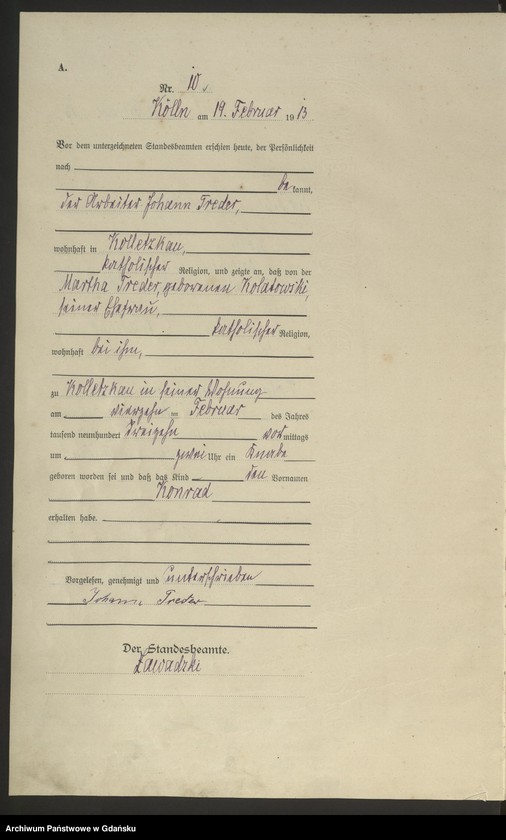 A.
Nr. 10.
Kölln am 19. Februar 1913.
Vor dem unterzeichneten Standesbeamten erschien heute, der Persönlichkeit
nach
be kannt,
der Arbeiter Johann Treder,
wohnhaft in Kolletzkau,
katholischer Religion, und zeigte an, daß von der
Martha Treder, geborenen Kolatowski,
seiner Ehefrau,
katholischer Religion,
wohnhaft bei ihm,
zu Kolletzkau in seiner Wohnung
am vierzehn ten Februar des Jahres
tausend neunhundert dreizehn vor mittags
um zwei Uhr ein Knabe
geboren worden sei und daß das Kind den Vornamen
Konrad
erhalten habe.
Vorgelesen, genehmigt und unterschrieben
Johann Treder
Der Standesbeamte.
Zawadzki
Archiwum Państwowe w Gdańsku